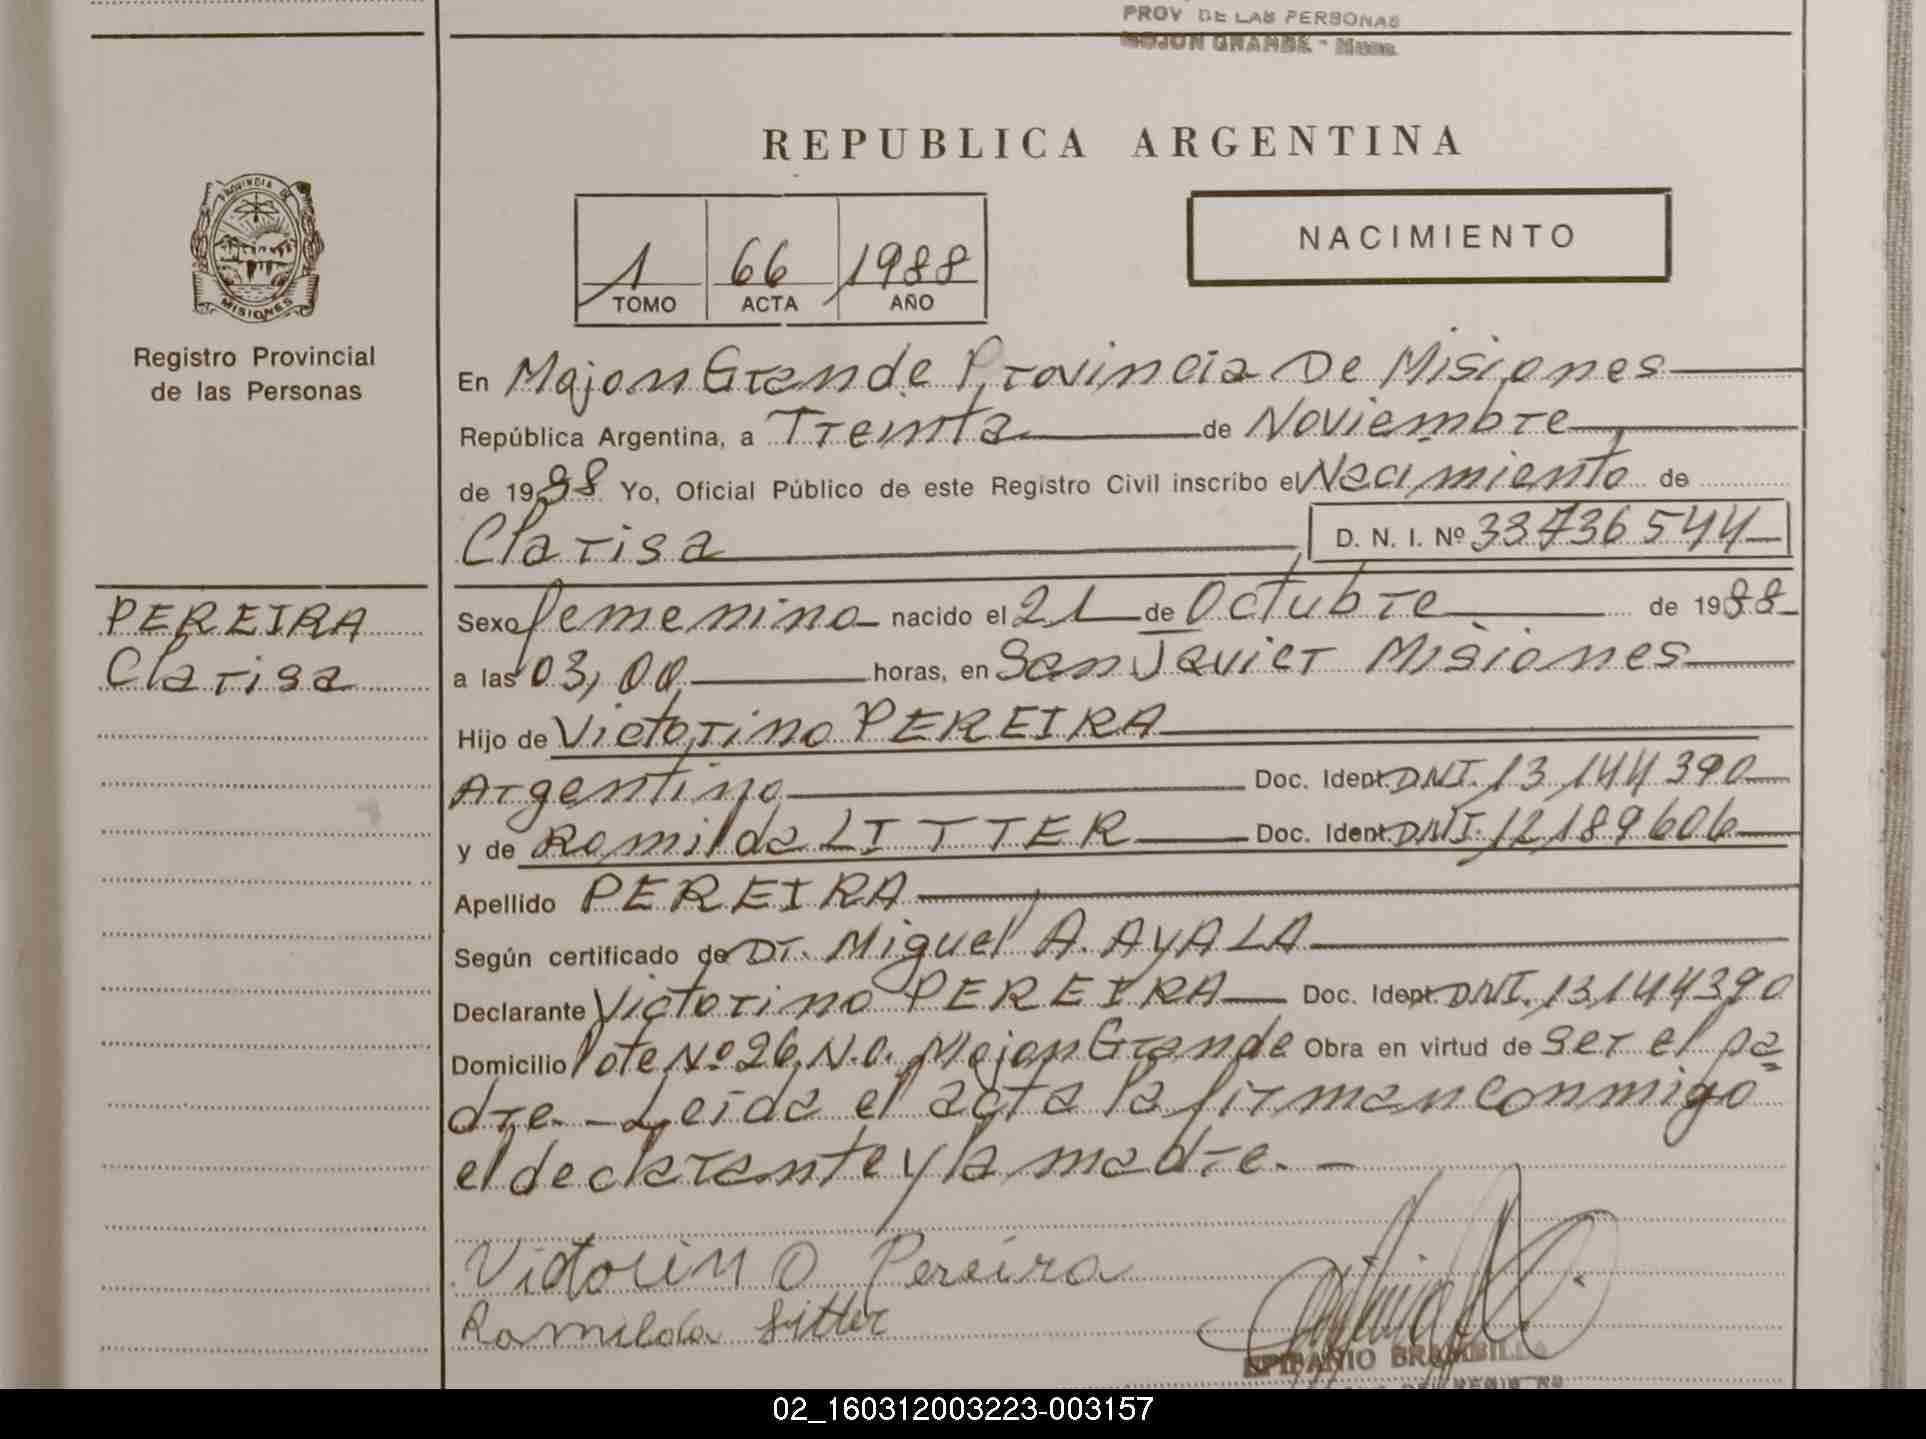 PROV DE LAS PERSONAS
MOJON GRANDE - Mnes.
REPUBLICA ARGENTINA
PROVINCIA DE
MISIONES
Registro Provincial
de las Personas
1 66 1988
TOMO ACTA AÑO
NACIMIENTO
En Mojon Grande Provincia De Misiones
República Argentina, a Treinta de Noviembre
de 1988 Yo, Oficial Público de este Registro Civil inscribo el Nacimiento de
Clarisa D. N. I. Nº 33736544
PEREIRA
Clarisa
Sexo femenino nacido el 21 de Octubre de 1988
a las 03,00 horas, en San Javier Misiones
Hijo de Victorino PEREIRA
Argentino Doc. Ident. DNI. 13144390
y de Romilda LITTER Doc. Ident. DNI. 12189606
Apellido PEREIRA
Según certificado de Dr. Miguel A. AYALA
Declarante Victorino PEREIRA Doc. Ident. DNI. 13144390
Domicilio lote Nº 26 N.O. Mojon Grande Obra en virtud de ser el pa=
dre. - Leida el acta la firman conmigo
el declarante y la madre. -
Victorino Pereira
Romilda Litter
EPIFANIO BRAMBILLA
02_160312003223-003157